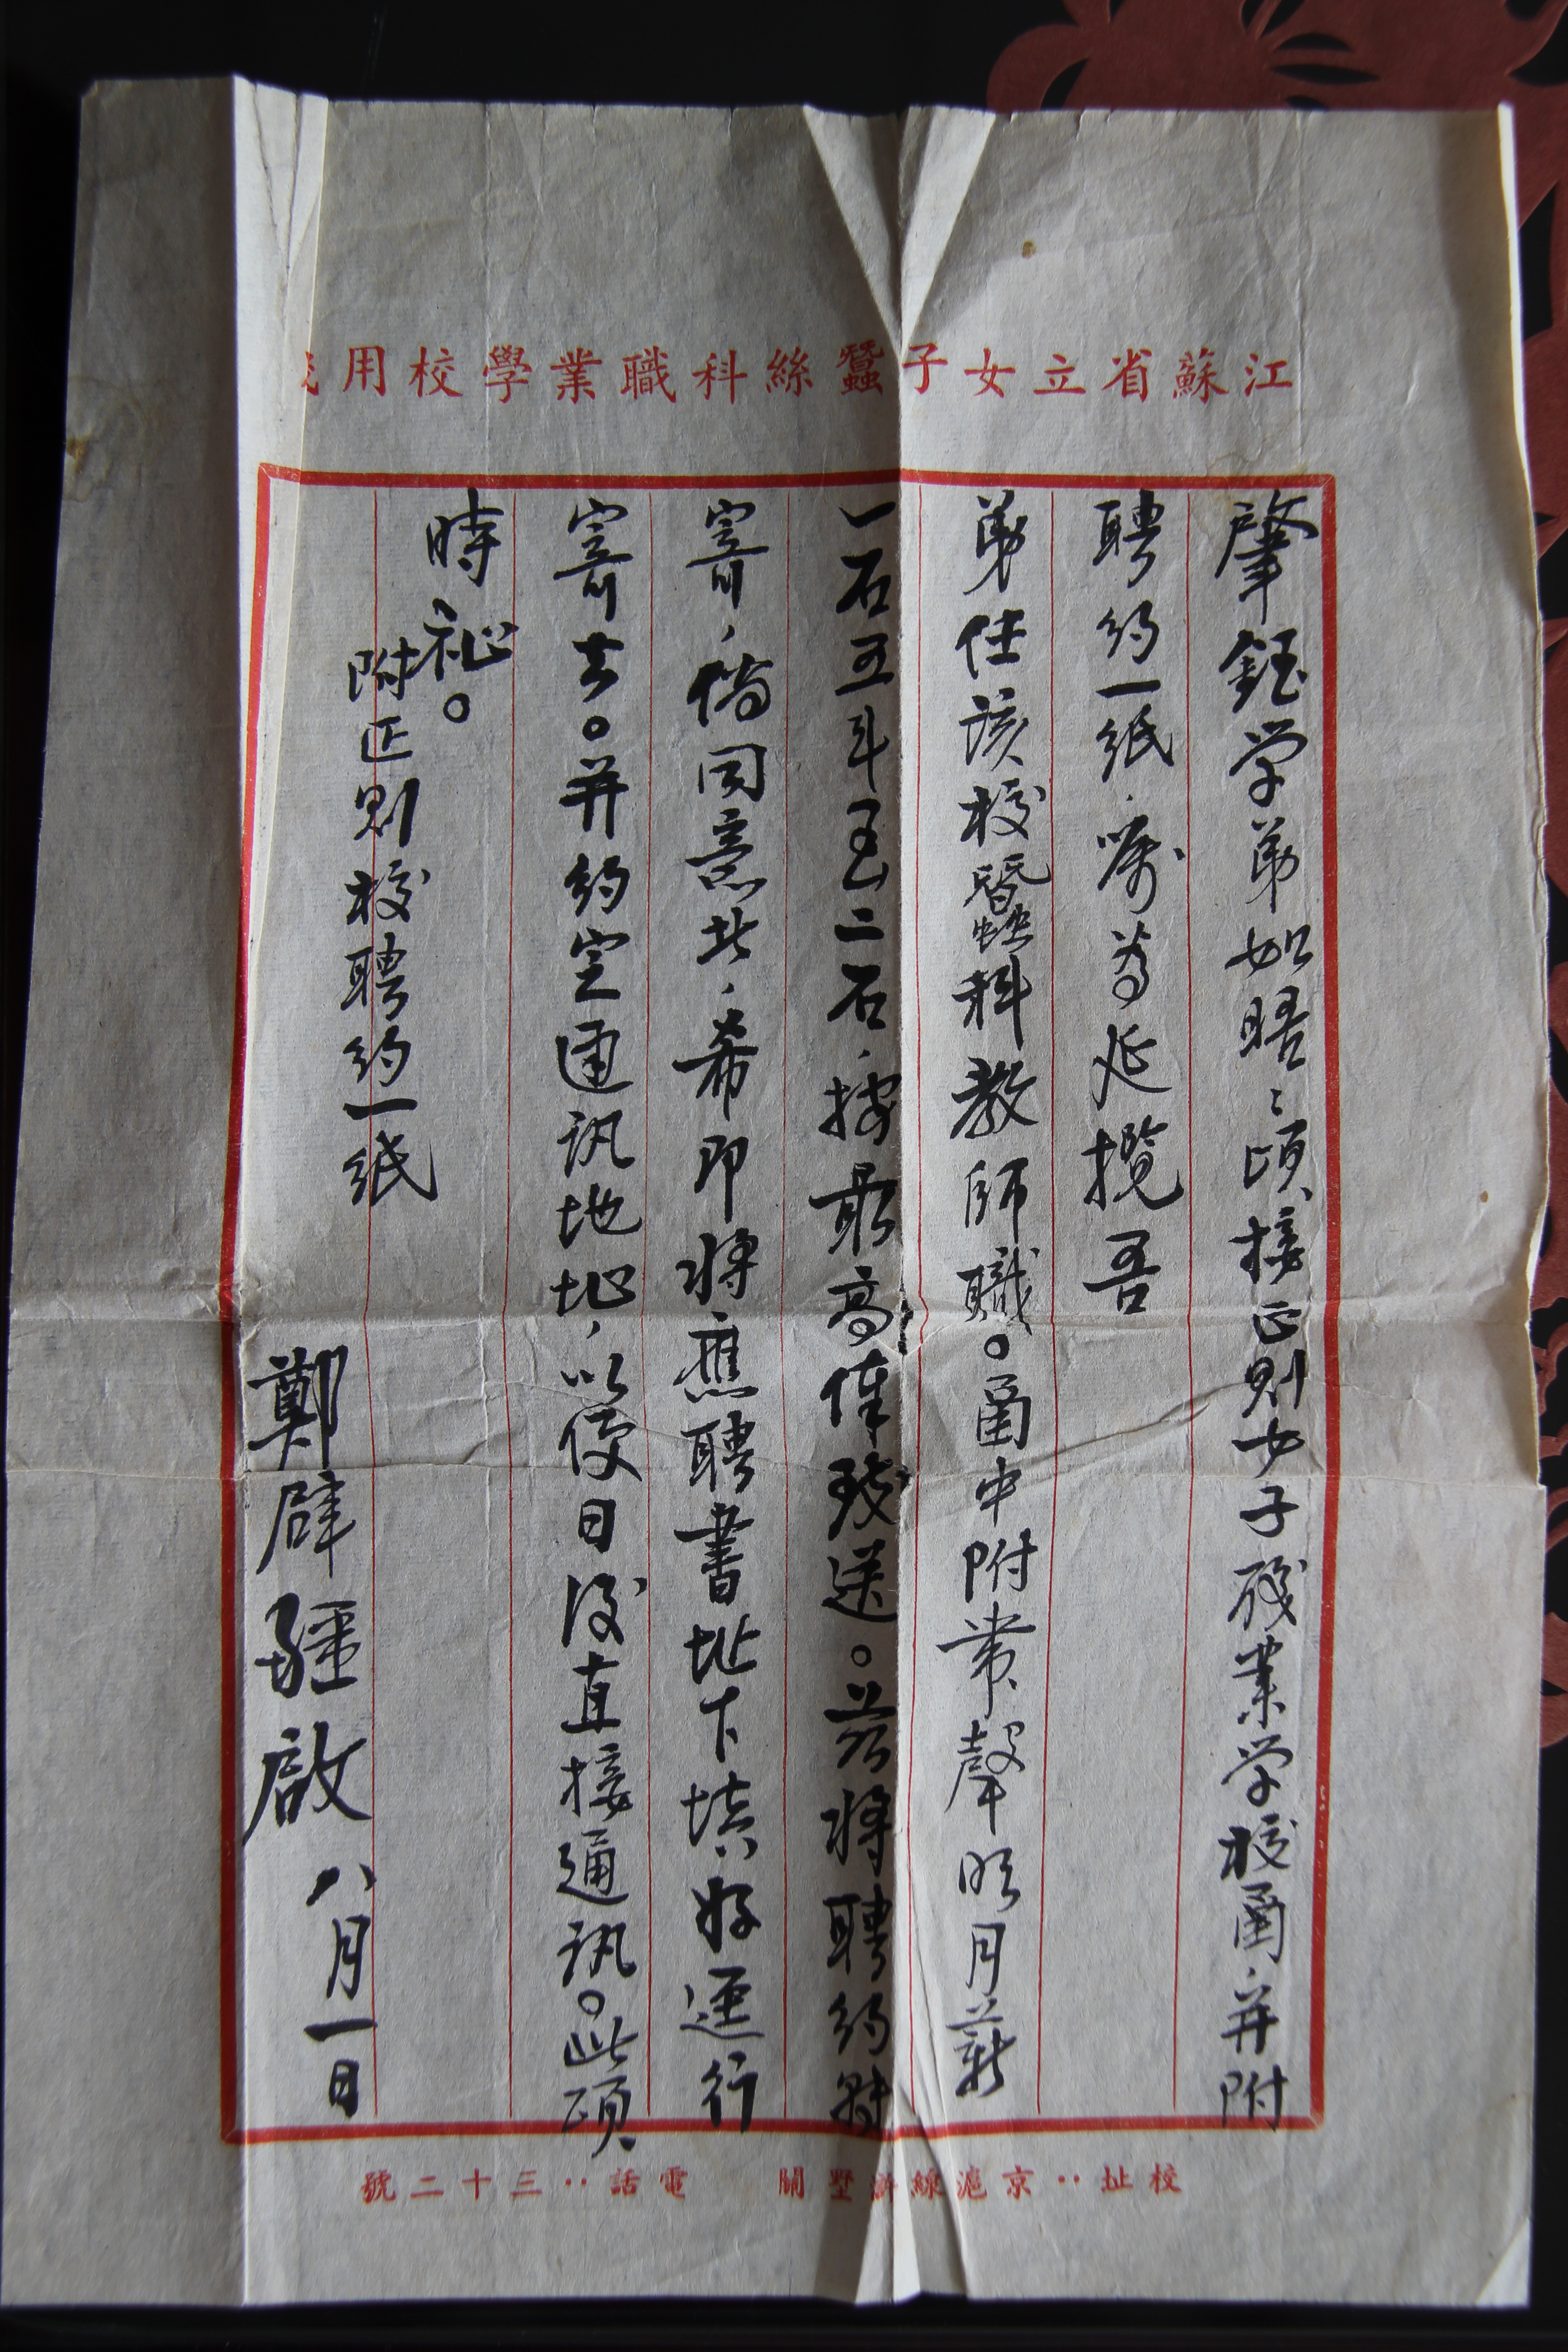 江蘇省立女子蠶絲科職業學校用
肇鈺学弟如晤：頃接正則女子职業学校函，并附
聘約一紙，嘱为延攬吾
弟任该校蠶科教師職。函中附帶聲明月薪
一石五斗至二石，按最高俸致送。茲將聘約附
寄，倘同意此，希即將應聘書址下填好逕行
寄去。并約定通訊地址，以便日後直接通訊。此頌
時祉。
附正則校聘約一紙
鄭辟疆啟 八月一日
校址：京滬線滸墅關 電話：三十二號